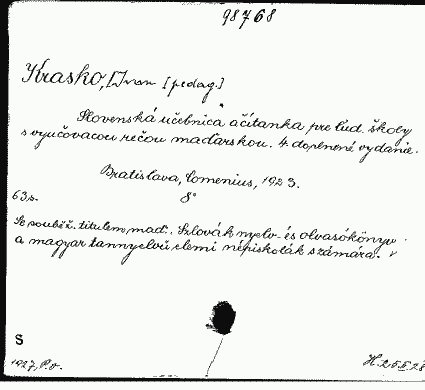 98768
Krasko, [Ivan [pedag.]
Slovenská učebnica a čítanka pre ľud. školy
s vyučovacou rečou maďarskou. 4. doplnené vydanie.
Bratislava, Comenius, 1923.
8°
63 s.
Se souběž. titulem maď.: Szlovák nyelv- és olvasókönyv
a magyar tannyelvű elemi népiskolák számára.
S
1927, P. o.